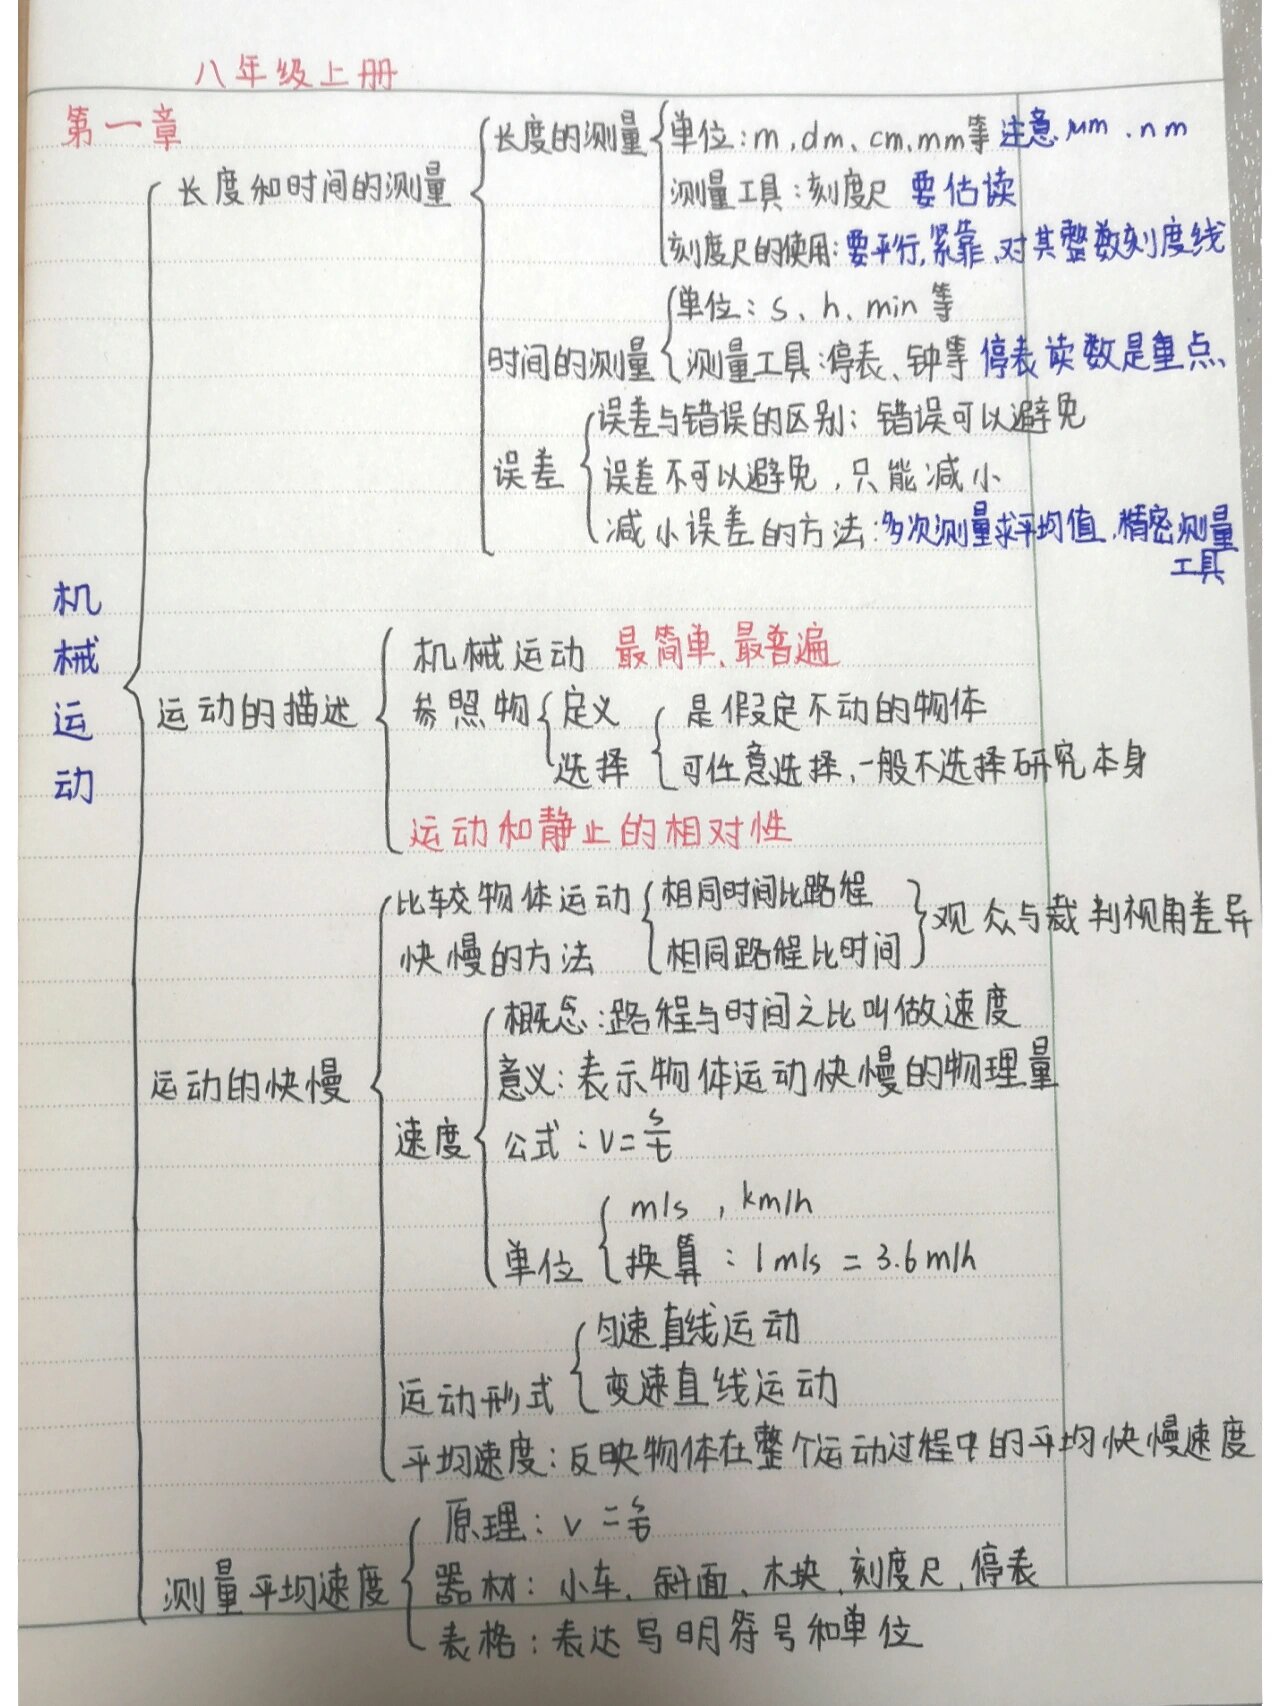 八年级上册
第一章
机械运动
长度和时间的测量
长度的测量
单位：m、dm、cm、mm等 注意μm、nm
测量工具：刻度尺 要估读
刻度尺的使用：要平行，紧靠、对其整数刻度线
时间的测量
单位：s、h、min等
测量工具：停表、钟等 停表读数是重点、
误差
误差与错误的区别：错误可以避免
误差不可以避免，只能减小
减小误差的方法：多次测量求平均值，精密测量
工具
运动的描述
机械运动 最简单、最普遍
参照物
定义
是假定不动的物体
选择
可任意选择、一般不选择研究本身
运动和静止的相对性
运动的快慢
比较物体运动
快慢的方法
相同时间比路程
相同路程比时间
观众与裁判视角差异
速度
概念：路程与时间之比叫做速度
意义：表示物体运动快慢的物理量
公式：v=s/t
单位
m/s，km/h
换算：1m/s=3.6m/h
运动形式
匀速直线运动
变速直线运动
平均速度：反映物体在整个运动过程中的平均快慢速度
测量平均速度
原理：v=s/t
器材：小车、斜面、木块、刻度尺、停表
表格：表达写明符号和单位